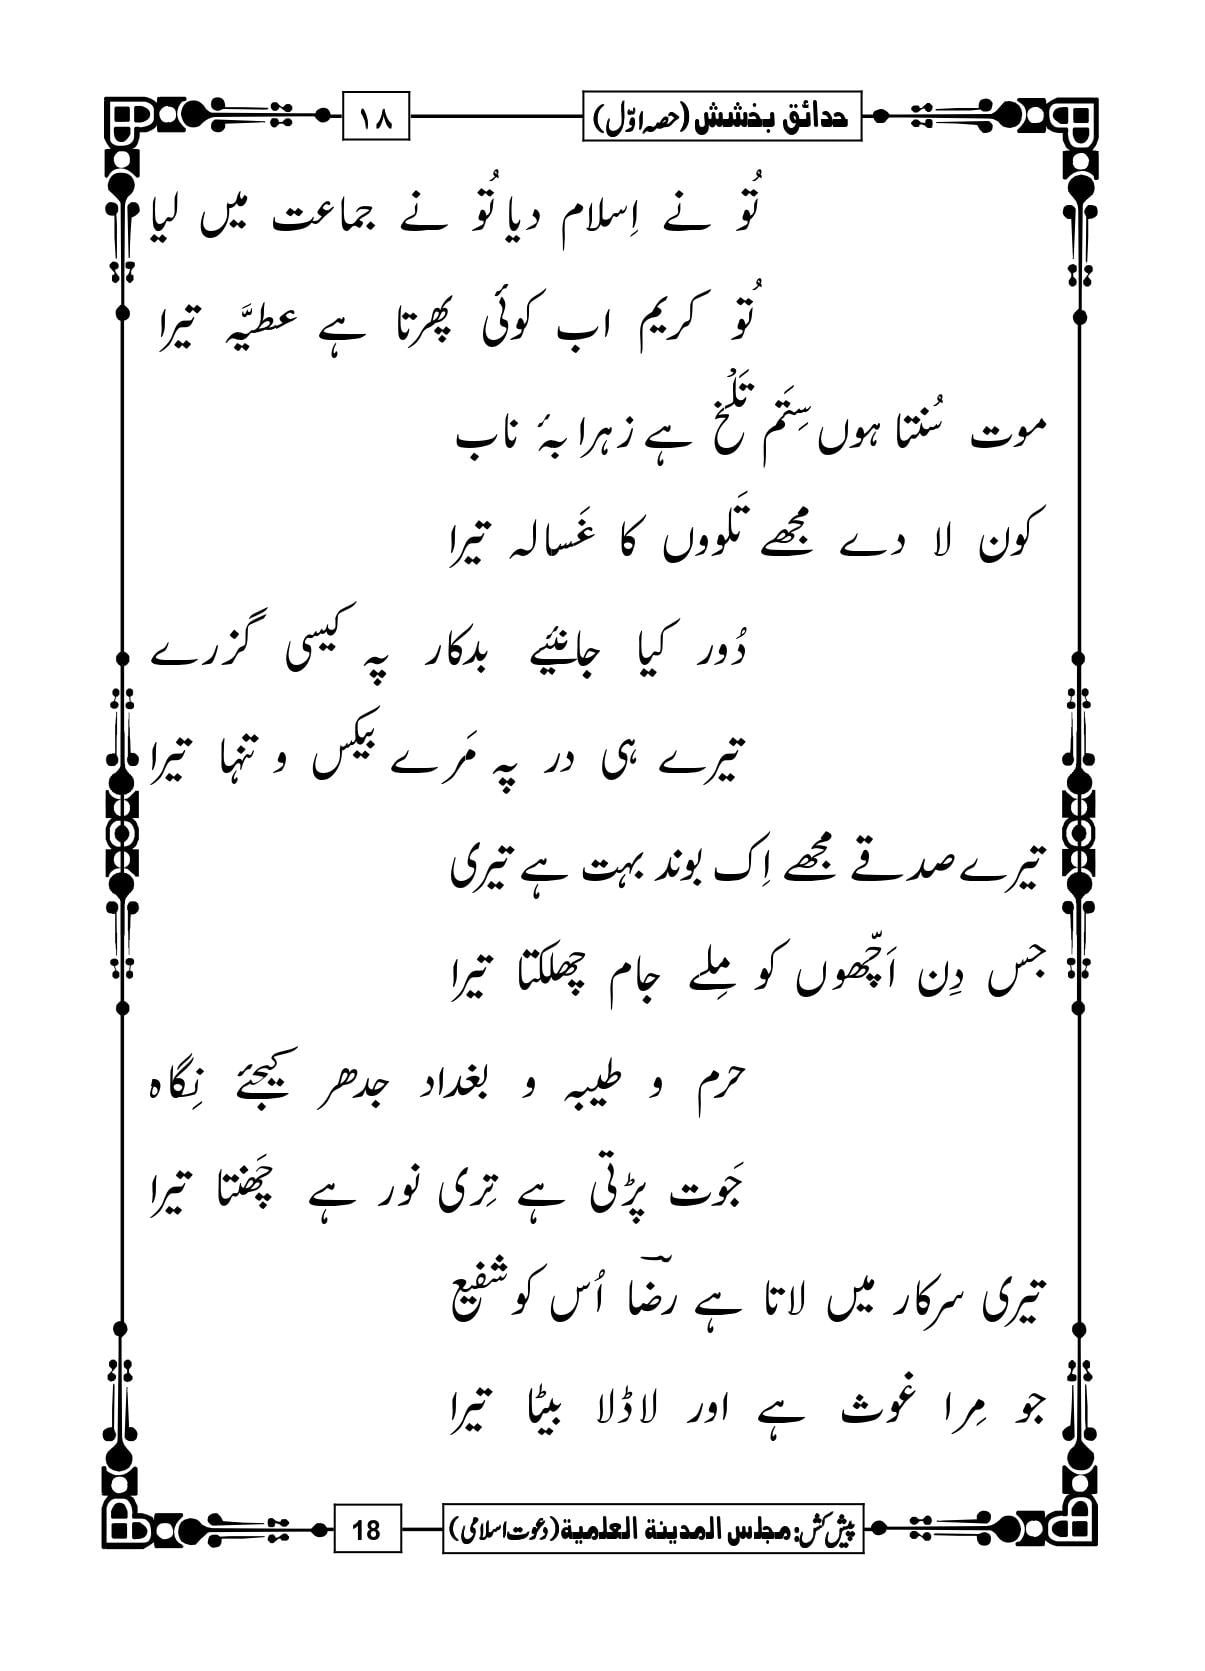 حدائق بخشش (حصہ اوّل) ١٨
تُو نے اِسلام دیا تُو نے جماعت میں لیا
تُو کریم اب کوئی پھرتا ہے عطیَّہ تیرا
موت سُنتا ہوں سِتَم تَلْخ ہے زہرابۂ ناب
کون لا دے مجھے تَلووں کا غَسالہ تیرا
دُور کیا جانئیے بدکار پہ کیسی گزرے
تیرے ہی در پہ مَرے بیکس و تنہا تیرا
تیرے صدقے مجھے اِک بوند بہت ہے تیری
جس دِن اَچّھوں کو مِلے جام چھلکتا تیرا
حرم و طیبہ و بغداد جدھر کیجئے نِگاہ
جَوت پڑتی ہے تِری نور ہے چَھنتا تیرا
تیری سرکار میں لاتا ہے رضؔا اُس کو شفیع
جو مِرا غوث ہے اور لاڈلا بیٹا تیرا
پیش کش: مجلس المدینة العلمیة (دعوت اسلامی) 18